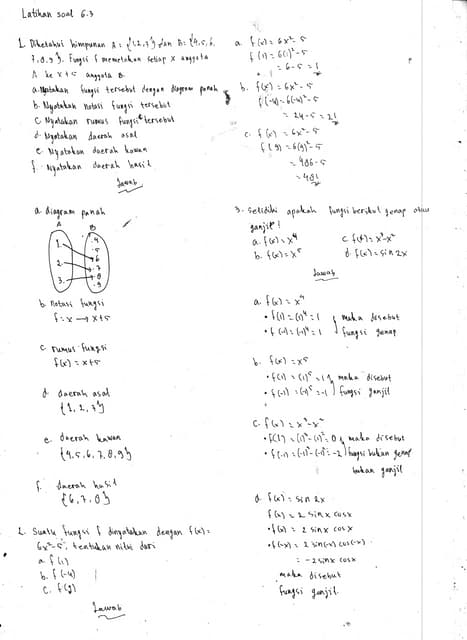 Latihan soal 6.3
1. Diketahui himpunan A = {1,2,3} dan B = {4,5,6,
7,8,9}. Fungsi f memetakan setiap x anggota
A ke x+5 anggota B.
a. Nyatakan fungsi tersebut dengan diagram panah
b. Nyatakan notasi fungsi tersebut
c. Nyatakan rumus fungsi tersebut
d. Nyatakan daerah asal
e. Nyatakan daerah kawan
f. Nyatakan daerah hasil
Jawab
a. diagram panah
A B
1. 2. 3.
.4 .5 .6 .7 .8 .9
b. notasi fungsi
f = x → x+5
c. rumus fungsi
f(x) = x+5
d. daerah asal
{1, 2, 3}
e. daerah kawan
{4, 5, 6, 7, 8, 9}
f. daerah hasil
{6, 7, 8}
2. Suatu fungsi f dinyatakan dengan f(x) =
6x²-5, tentukan nilai dari
a. f(1)
b. f(-4)
c. f(9)
Jawab
a. f(x) = 6x²-5
f(1) = 6(1)²-5
= 6-5 = 1
b. f(x) = 6x²-5
f(-4) = 6(-4)²-5
= 24-5 = 21
c. f(x) = 6x²-5
f(9) = 6(9)²-5
= 486-5
= 481
3. Selidiki apakah fungsi berikut genap atau
ganjil!
a. f(x) = x⁴ c. f(x) = x³-x²
b. f(x) = x⁵ d. f(x) = sin 2x
Jawab
a. f(x) = x⁴
• f(1) = (1)⁴ = 1 } maka disebut
• f(-1) = (-1)⁴ = 1 fungsi genap
b. f(x) = x⁵
• f(1) = (1)⁵ = 1 } maka disebut
• f(-1) = (-1)⁵ = -1 fungsi ganjil
c. f(x) = x³-x²
• f(1) = (1)³-(1)² = 0 } maka disebut
• f(-1) = (-1)³-(-1)² = -2 fungsi bukan genap
bukan ganjil
d. f(x) = sin 2x
f(x) = 2 sin x cos x
• f(x) = 2 sin x cos x
• f(-x) = 2 sin(-x) cos(-x)
= -2 sin x cos x
maka disebut
fungsi ganjil.